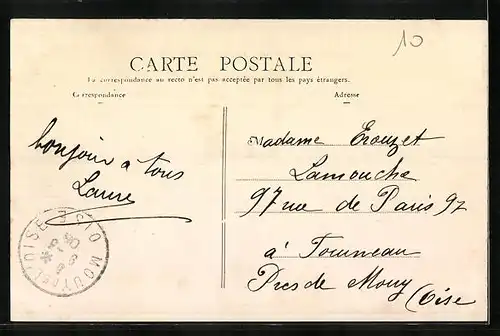 10
CARTE POSTALE
La correspondance au recto n'est pas acceptée par tous les pays étrangers.
Correspondance
Adresse
bonjour a tous
Laure
Madame
Lamouche
97 rue de Paris 97
à
Pres de Mouy
(Oise
MOUY OISE